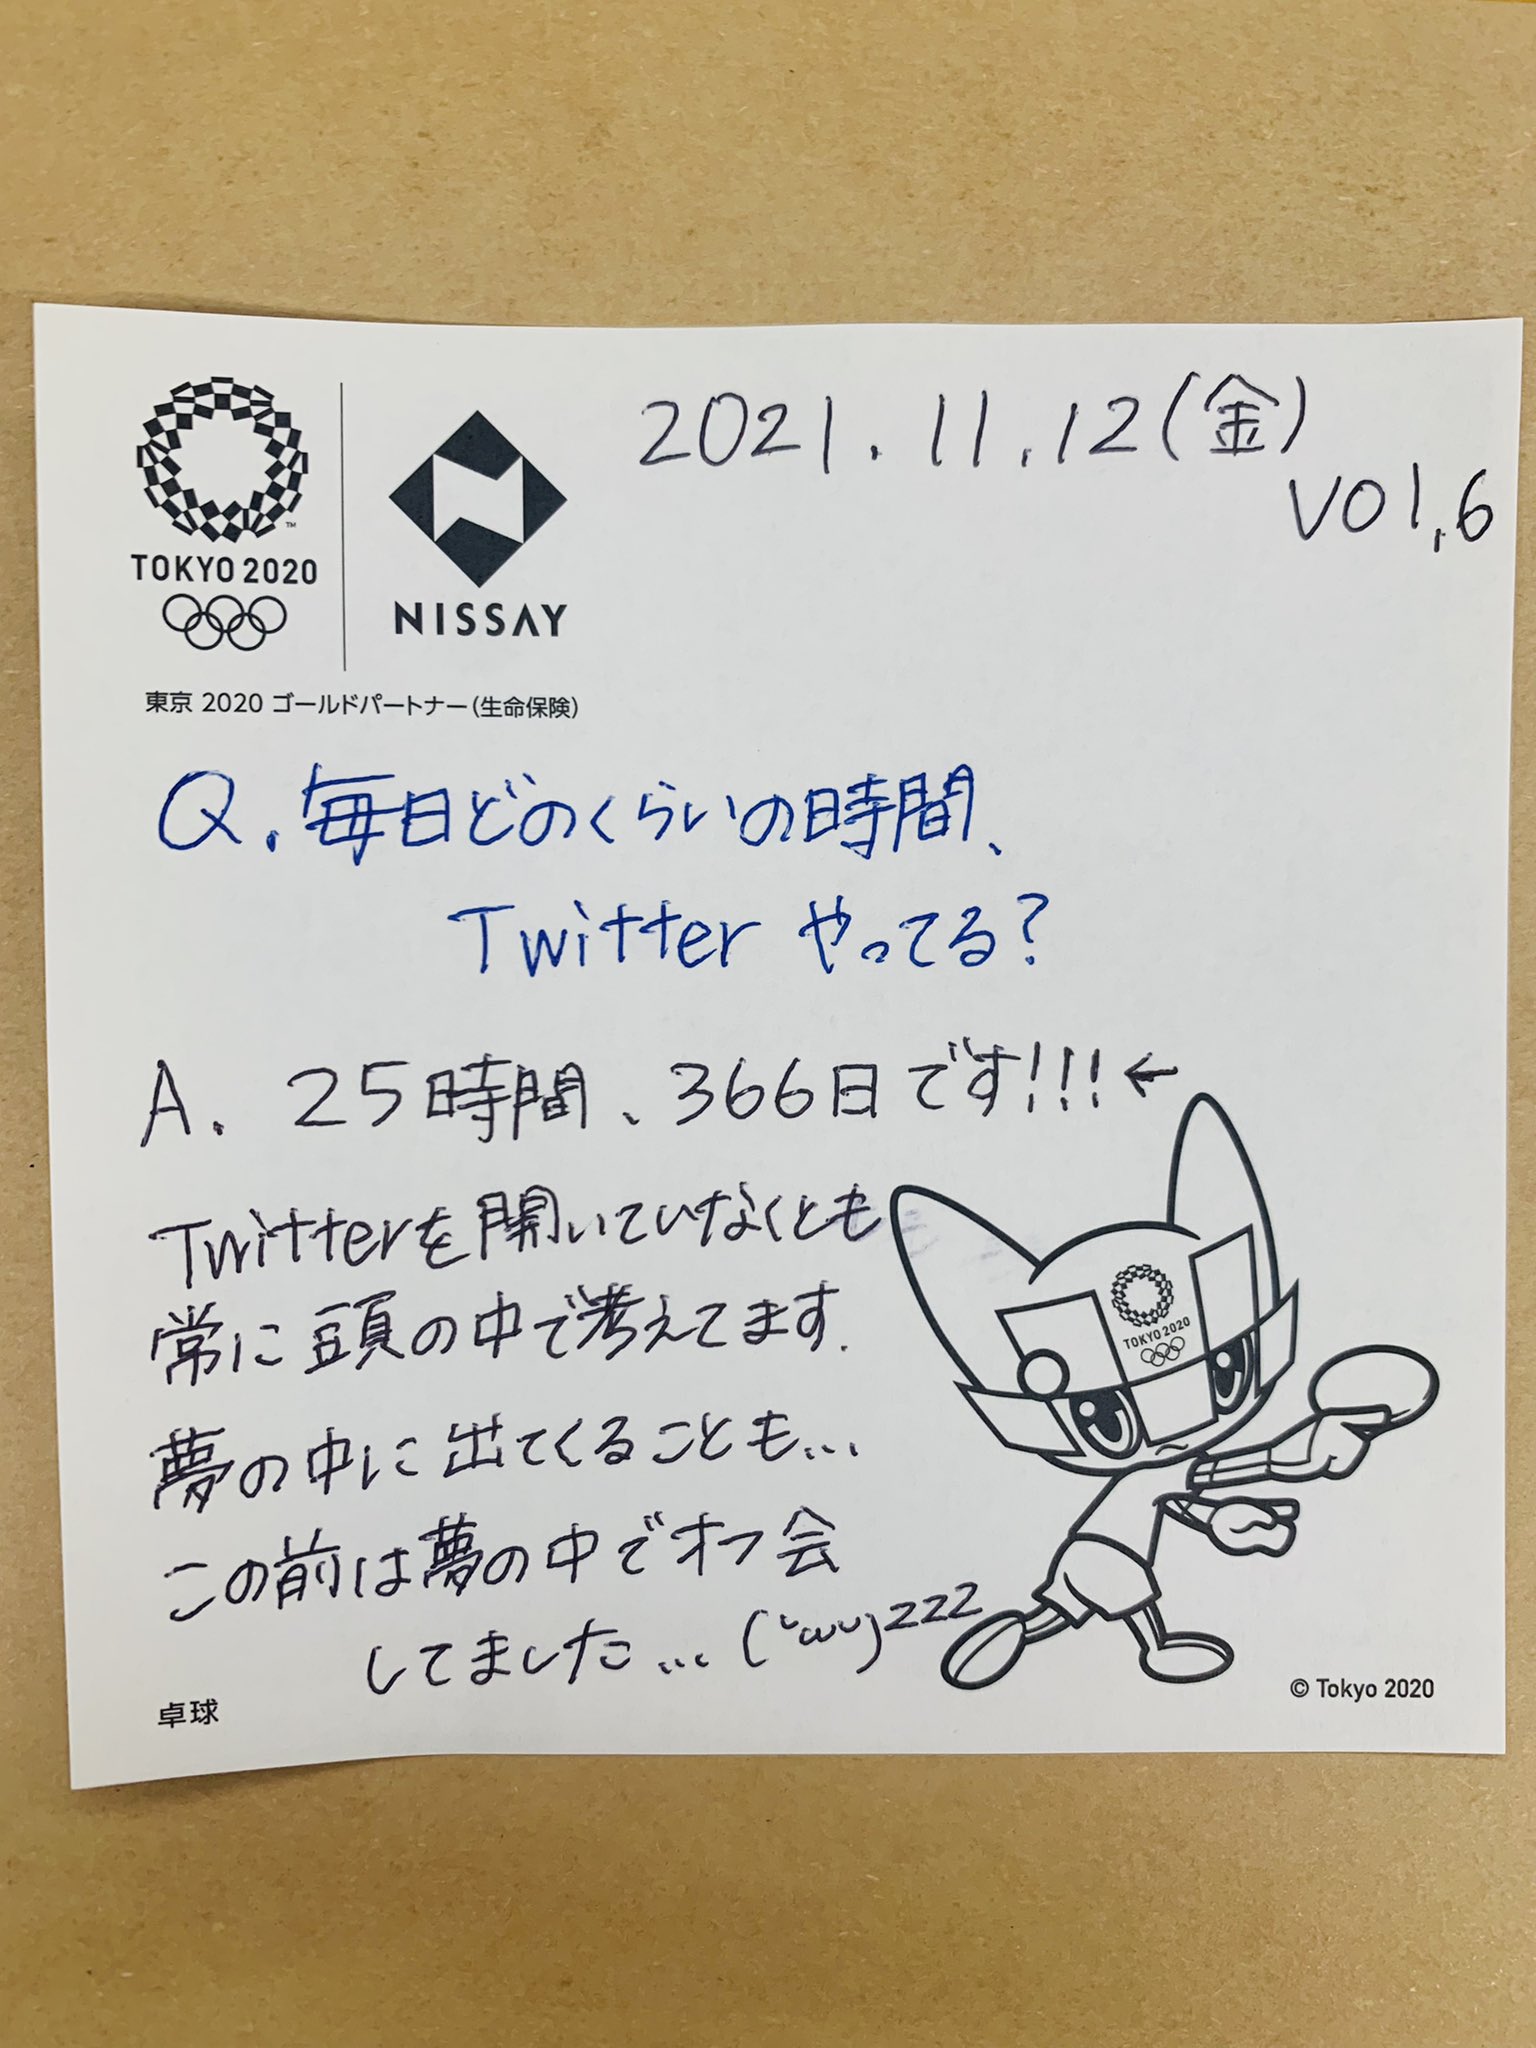 2021.11.12(金)
vol.6
TOKYO 2020
NISSAY
東京 2020 ゴールドパートナー(生命保険)
Q.毎日どのくらいの時間、
Twitter やってる?
A. 25時間、366日です!!!←
Twitterを開いていなくとも
常に頭の中で考えてます.
夢の中に出てくることも...
この前は夢の中でオフ会
してました...(˘ω˘)zzz
TOKYO 2020
卓球
© Tokyo 2020